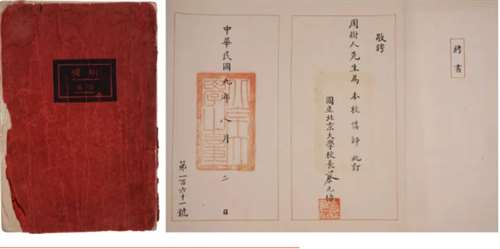 聘書
敬聘
周樹人先生為本校講師此訂
國立北京大學校長蔡元培
中華民國九年八月二日
第一百六十一號